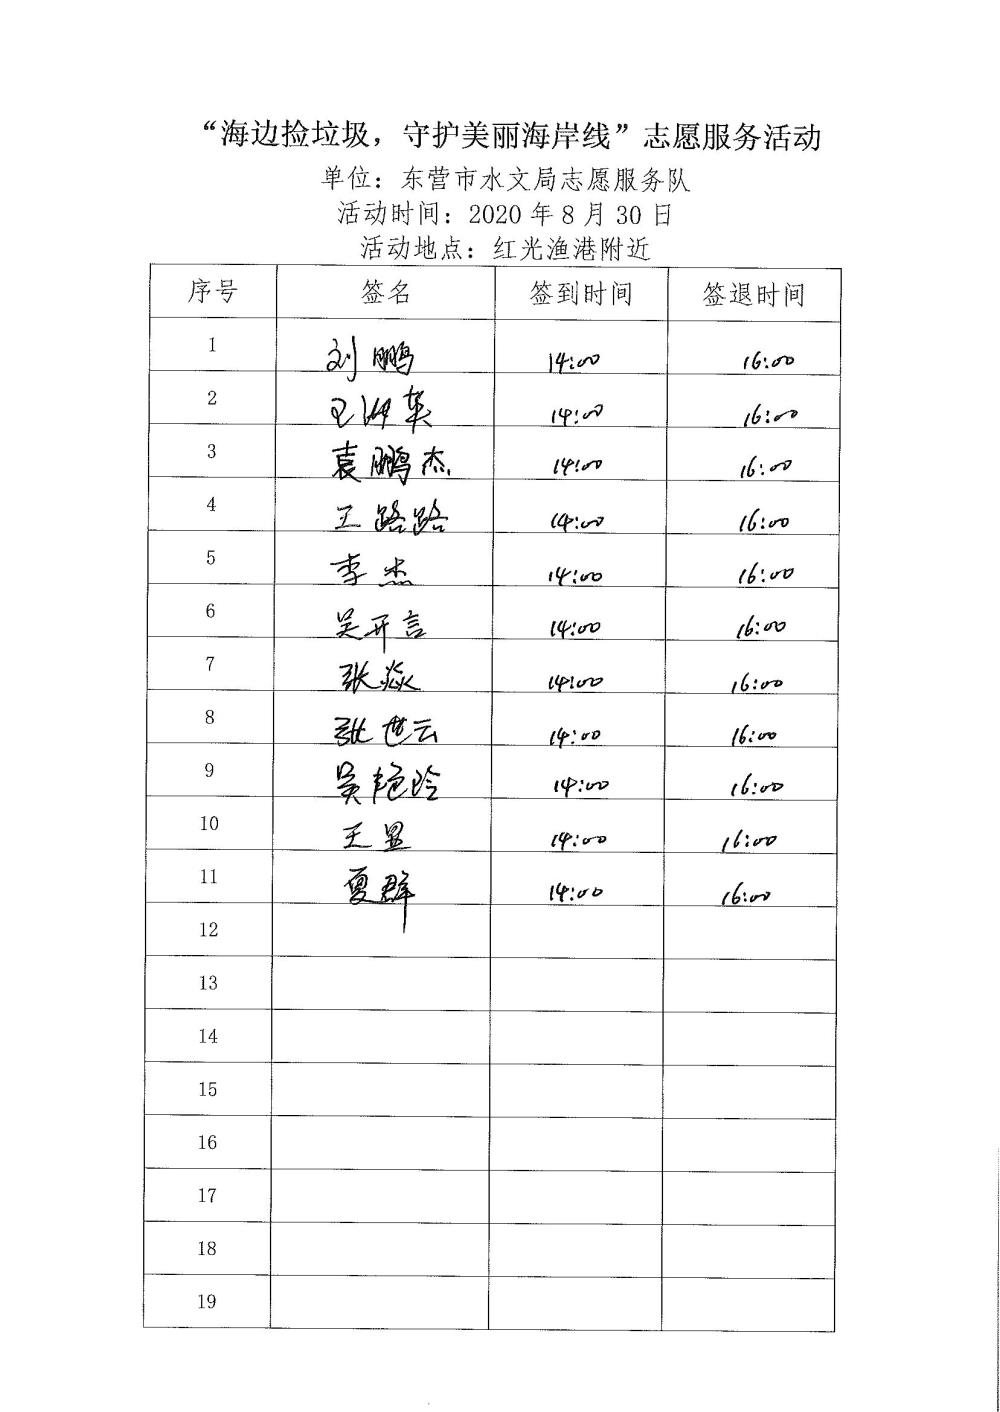 “海边捡垃圾，守护美丽海岸线”志愿服务活动
单位：东营市水文局志愿服务队
活动时间：2020 年 8 月 30 日
活动地点：红光渔港附近
序号 签名 签到时间 签退时间
1 刘鹏 14:00 16:00
2 王 英 14:00 16:00
3 袁鹏杰 14:00 16:00
4 王路路 14:00 16:00
5 李杰 14:00 16:00
6 吴开言 14:00 16:00
7 张焱 14:00 16:00
8 张世云 14:00 16:00
9 吴艳玲 14:00 16:00
10 王昱 14:00 16:00
11 夏群 14:00 16:00
12
13
14
15
16
17
18
19